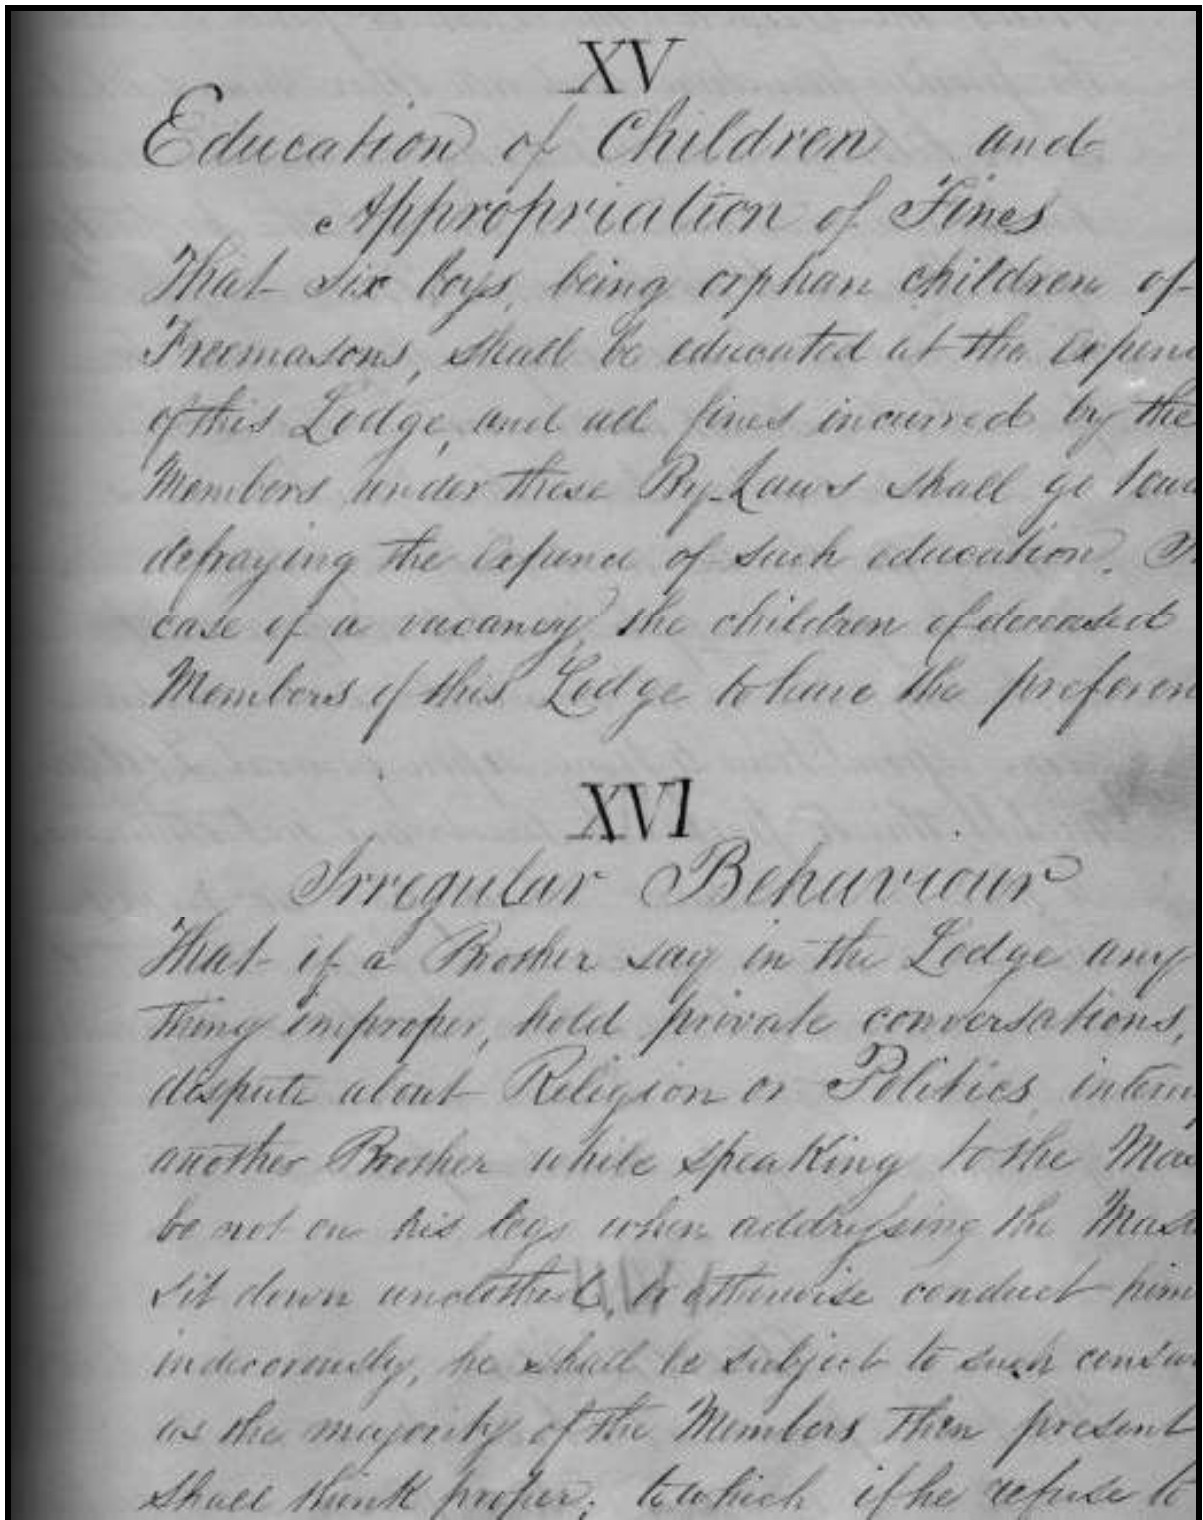 XV
Education of Children and
Appropriation of Fines
That six boys, being orphan children of
Freemasons, shall be educated at the Expen
of this Lodge, and all fines incurred by the
Members under these By-Laws shall go tow
defraying the Expence of such education. In
case of a vacancy, the children of deceased
Members of this Lodge to have the preferen
XVI
Irregular Behaviour
That if a Brother say in the Lodge any
thing improper, hold private conversations,
dispute about Religion or Politics, interru
another Brother while speaking to the Mas
be not on his legs when addressing the Mast
sit down unclothed, or otherwise conduct him
indecorously, he shall be subject to such censur
as the majority of the Members then present
shall think proper; to which if he refuse to